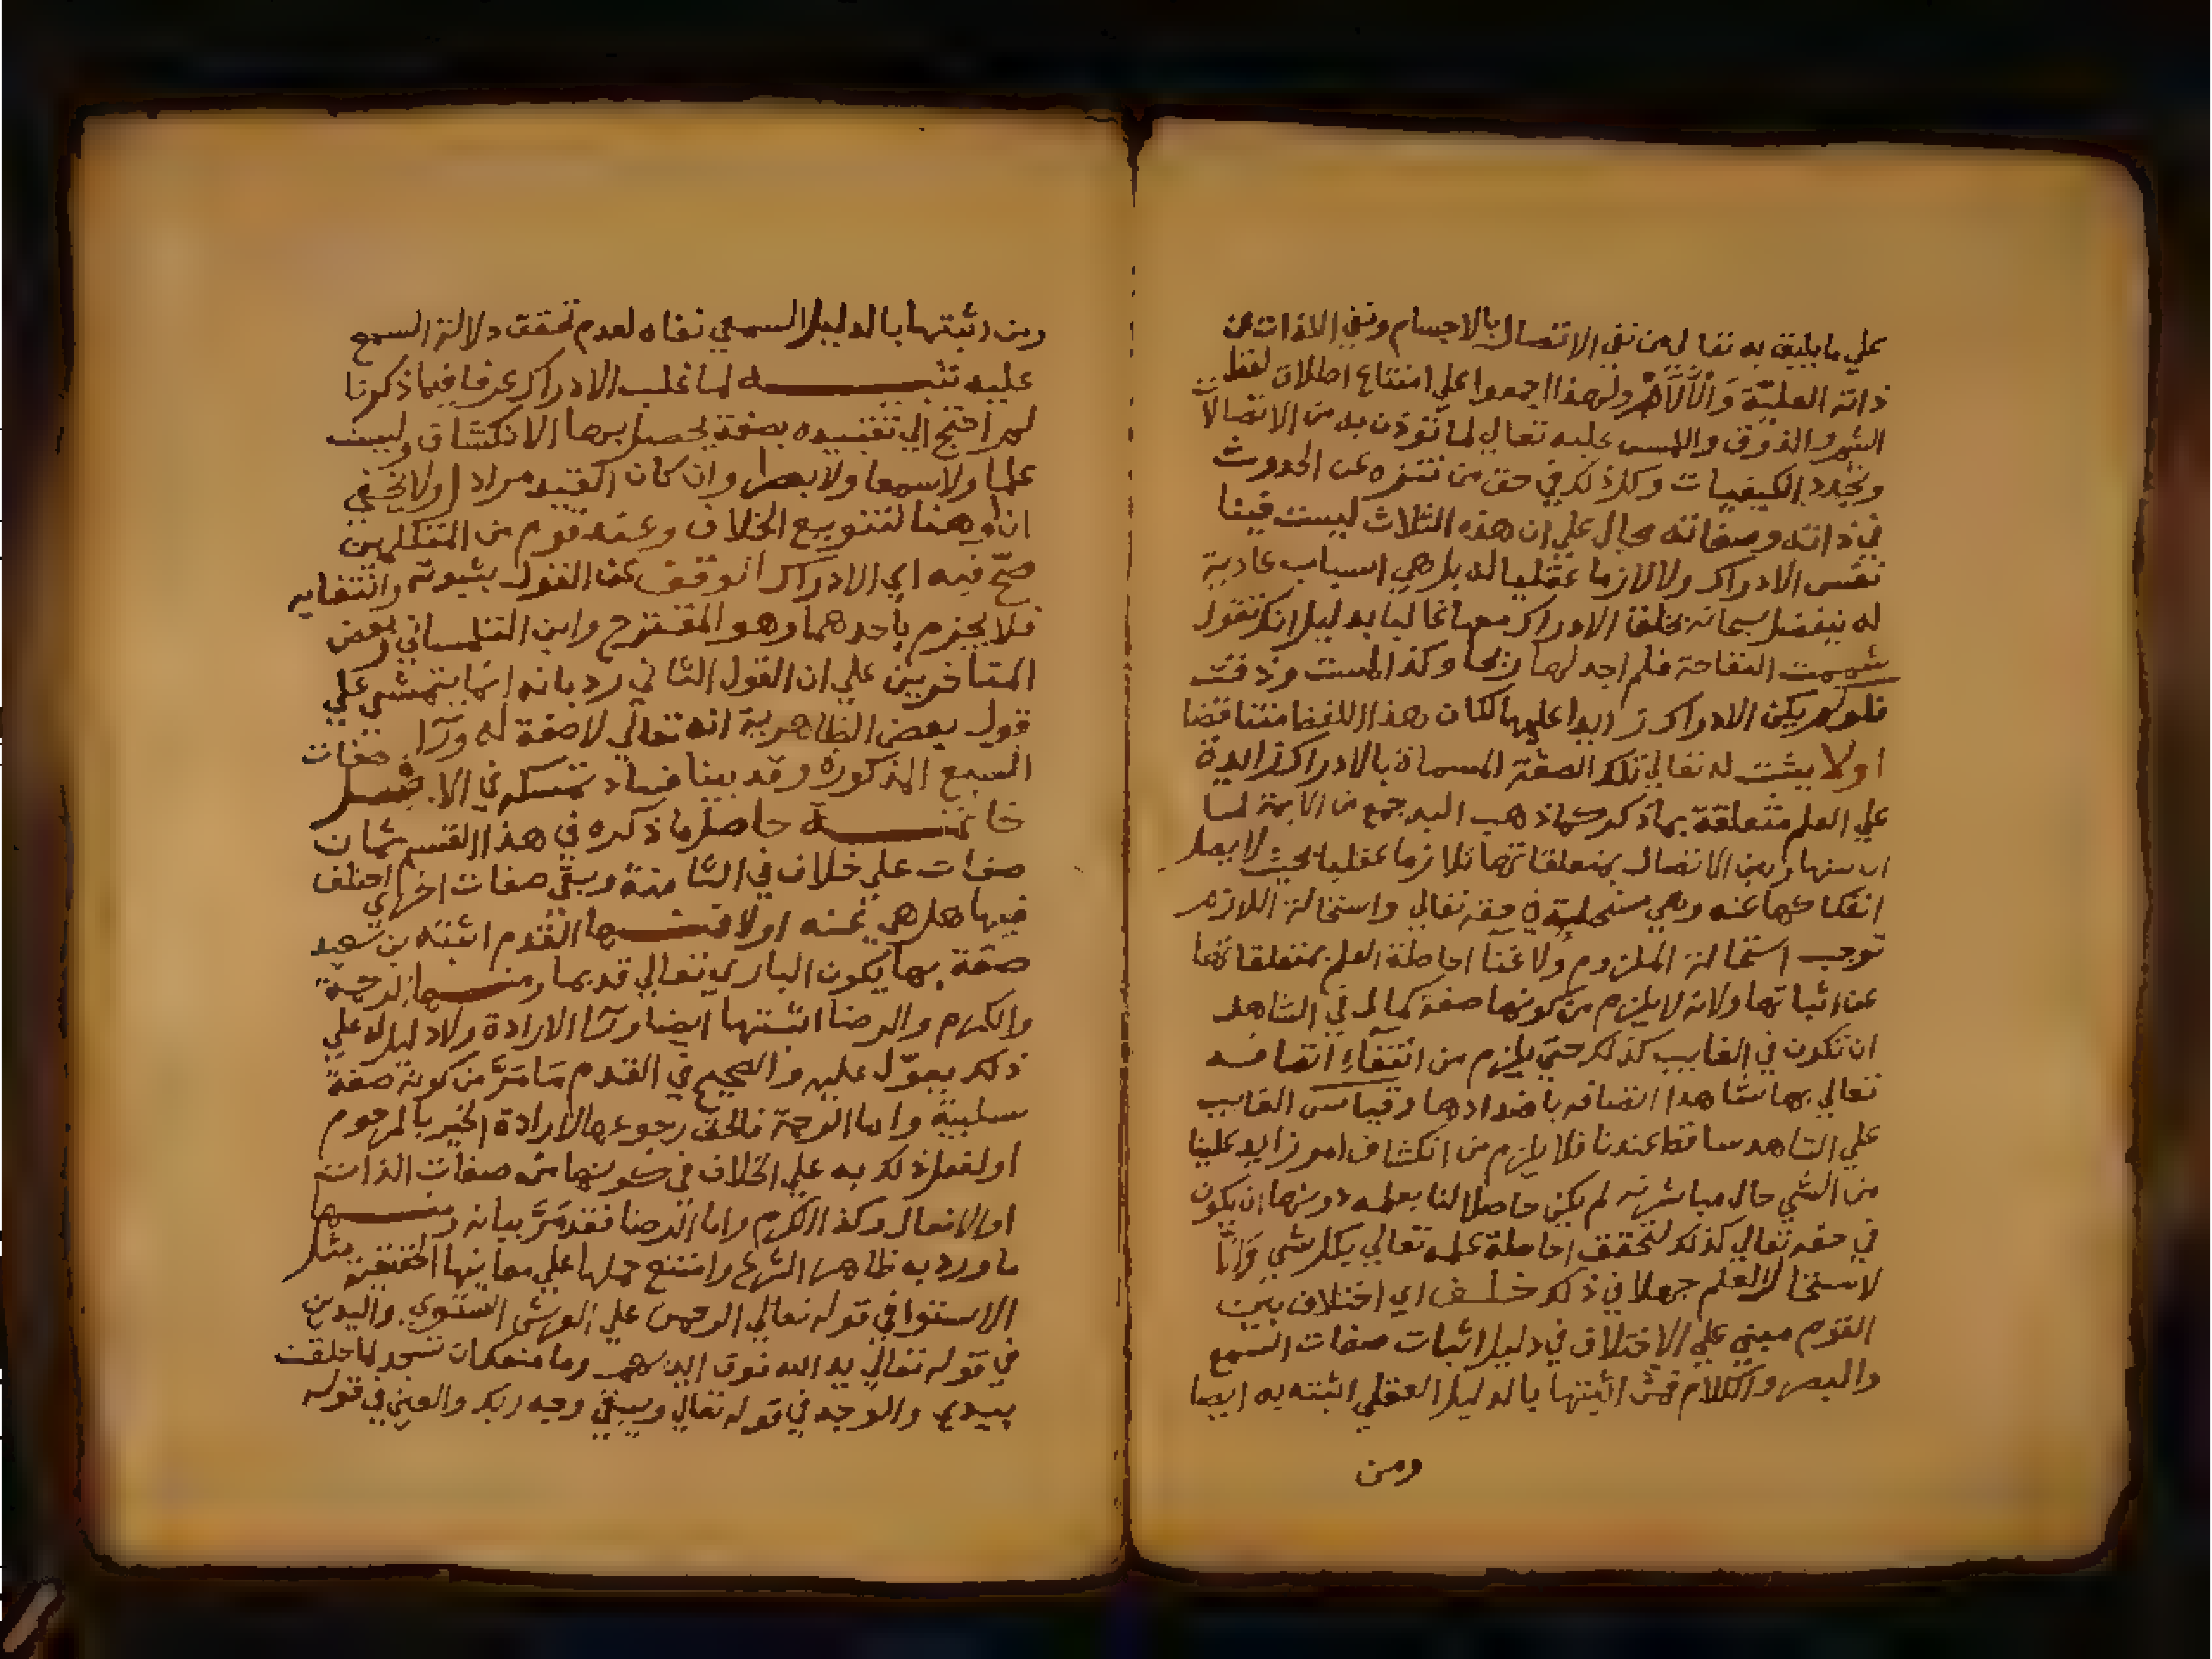 علي ما يليق به تعالى من نفي الاتصال بالاجسام ونفي اللذات عن
ذاته العلية والآلام ولهذا اجمعوا علي امتناع اطلاق لفظ
الشم والذوق واللمس عليه تعالي لما تؤذن به من الاتصالات
وتجدد الكيفيات وكل ذلك في حق من تنزه عن الحدوث
في ذاته وصفاته محال علي ان هذه الثلاث ليست فينا
نفس الادراك ولا لازما عقليا له بل هي اسباب عادية
له يتفضل سبحانه بخلق الادراك معها غالبا بدليل انك تقول
شممت التفاحة فلم اجد لها ريحا وكذا لمست وذقت
فلو لم يكن الادراك زايدا عليها لكان هذا اللفظ متناقضا
اولا يثبت له تعالي تلك الصفة المسماة بالادراك زايدة
علي العلم متعلقة بما ذكر كما ذهب اليه جمع من الايمة لما
ان بينها وبين الاتصال بمتعلقاتها تلازما عقليا بحيث لا يصل
انفكاكها عنه وهي مستحيلة في حقه تعالي واستحالة اللازم
توجب استحالة الملزوم ولاغنا احاطة العلم بمتعلقاتها
عن اثباتها ولانه لا يلزم من كونها صفة كمال في الشاهد
ان تكون في الغايب كذلك حتي يلزم من انتفاء اتصافه
تعالي بها شاهدا اتصافه باضدادها وقياس الغايب
علي الشاهد ساقط عندنا فلا يلزم من انكشاف امر زايد علينا
من الشي حال مباشرته لم يكن حاصلا لنا بعلمه دونها ان يكون
في حقه تعالي كذلك لتحقق احاطة علمه تعالي بكل شي وانا
لاستحال العلم جهلا في ذلك خلف اي اختلاف بين
القوم مبني علي الاختلاف في دليل اثبات صفات السمع
والبصر والكلام فمن اثبتها بالدليل العقلي اثبته به ايضا
ومن
ومن اثبتها بالدليل السمعي نفاه لعدم تحقق دلالة السمع
عليه تنبيه لما غلب الادراك عرفا فيما ذكرنا
لم احتج الي تقييده بصفة يحصل بها الانكشاف وليست
علما ولا سمعا ولا بصرا وان كان القيد مرادا ولا يخفي
ان او هنا لتنويع الخلاف وعند قوم من المتكلمين
صح فيه اي الادراك الوقف عن القول بثبوته وانتفايه
فلا يجزم بأحدهما وهو المقترح وابن التلمساني وبعض
المتاخرين علي ان القول الثاني رد بانه انما يتمشي علي
قول بعض الظاهرية انه تعالي لا صفة له ورآ صفات
السبع المذكورة وقد بينا فساد تمسكه في الاصل
خاتمة حاصل ما ذكره في هذا القسم ثمان
صفات علي خلاف في الثامنة وبقي صفات اخر اختلف
فيها هل هي عنه اولا فمنها القدم اثبته بن سعيد
صفة بها يكون الباري تعالي قديما ومنها الرحمة
والكرم والرضا اثبتها ايضا ورآ الارادة ولا دليل له علي
ذلك يعوّل عليه والصحيح في القدم ما مَرّ من كونه صفة
سلبية واما الرحمة فالحق رجوعها لارادة الخير بالمرحوم
او لفعل ذلك به علي الخلاف في كونها من صفات الذات
او الافعال وكذا الكرم واما الرضا فقد مَرّ بيانه ومنها
ما ورد به ظاهر الشرع وامتنع حملها علي معاينها الحقيقية مثل
الاستوا في قوله تعالي الرحمن علي العرش استوي واليدين
في قوله تعالي يد الله فوق ايديهم وما منعك ان تسجد لما خلقت
بيدي والوجه في قوله تعالي ويبقي وجه ربك والعين في قوله